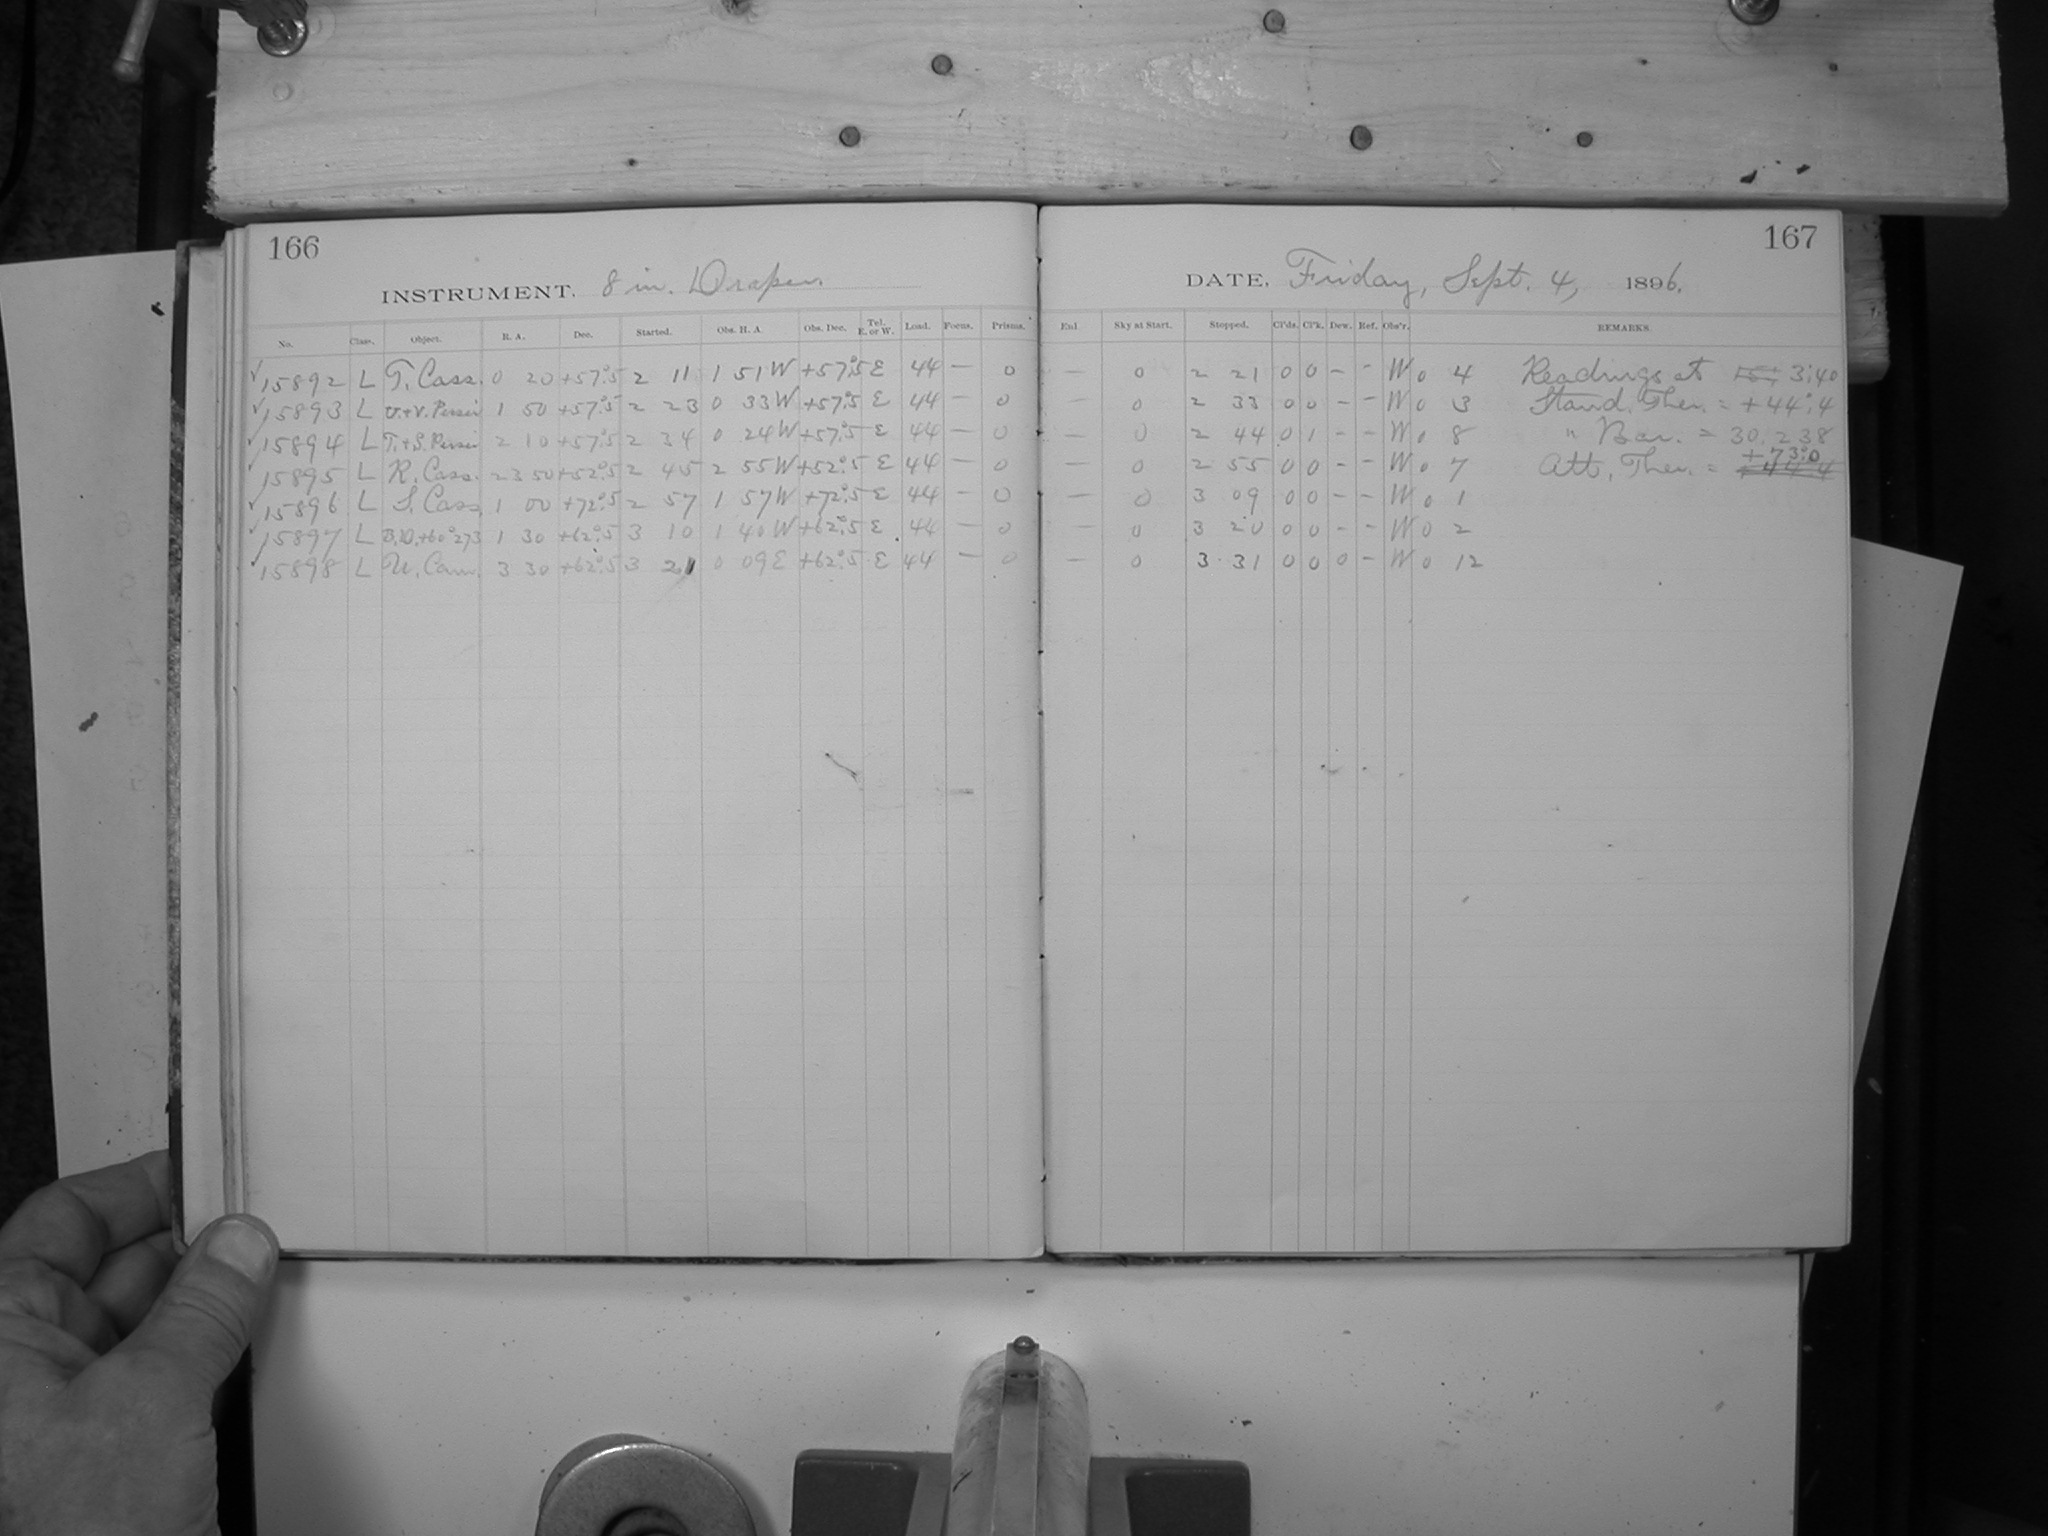 166
INSTRUMENT. 8 in. Draper.
No. Class. Object. R. A. Dec. Started. Obs. H. A. Obs. Dec. Tel. E. or W. Load. Focus. Prisms.
✓15892 L T. Cass. 0 20 +57°.5 2 11 1 51 W +57°.5 E 44 — 0
✓15893 L U.+V. Persei 1 50 +57°.5 2 23 0 33 W +57°.5 E 44 — 0
✓15894 L T.+S. Persei 2 10 +57°.5 2 34 0 24 W +57°.5 E 44 — 0
✓15895 L R. Cass. 23 50 +52°.5 2 45 2 55 W +52°.5 E 44 — 0
✓15896 L S. Cass. 1 00 +72°.5 2 57 1 57 W +72°.5 E 44 — 0
✓15897 L B.D.+60°273 1 30 +62°.5 3 10 1 40 W +62°.5 E 44 — 0
✓15898 L U. Cam. 3 30 +62°.5 3 21 0 09 E +62°.5 E 44 — 0
167
DATE. Friday, Sept. 4, 1896.
Exl Sky at Start. Stopped. Cl'ds. Cl'k. Dew. Ref. Obs'r. REMARKS.
— 0 2 21 0 0 – – W 0 4 Readings at 3:40
— 0 2 33 0 0 – – W 0 3 Stand. Ther. = +44°.4
— 0 2 44 0 1 – – W 0 8 " Bar. = 30.238
— 0 2 55 0 0 – – W 0 7 Att. Ther. = +73°.0
— 0 3 09 0 0 – – W 0 1
— 0 3 20 0 0 – – W 0 2
— 0 3 31 0 0 0 – W 0 12